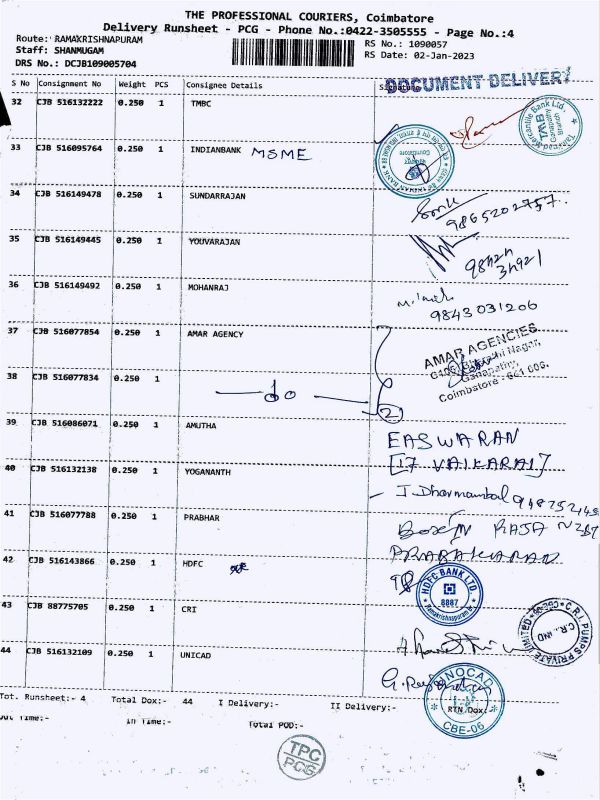 THE PROFESSIONAL COURIERS, Coimbatore
Delivery Runsheet - PCG - Phone No.:0422-3505555 - Page No.:4
Route: RAMAKRISHNAPURAM
RS No.: 1090057
Staff: SHANMUGAM
RS Date: 02-Jan-2023
DRS No.: DCJB109005704
DOCUMENT DELIVERY
S No Consignment No Weight PCS Consignee Details
32 CJB 516132222 0.250 1 TMBC
33 CJB 516095764 0.250 1 INDIANBANK MSME
34 CJB 516149478 0.250 1 SUNDARRAJAN
9865202757
35 CJB 516149445 0.250 1 YOUVARAJAN
36 CJB 516149492 0.250 1 MOHANRAJ
9843031206
37 CJB 516077854 0.250 1 AMAR AGENCY
AMAR AGENCIES
Nagar,
Ganapathy,
Coimbatore - 641 006.
38 CJB 516077834 0.250 1 — do — 2
39 CJB 516086071 0.250 1 AMUTHA
EASWARAN
[17 VAIKARAI]
40 CJB 516132138 0.250 1 YOGANANTH
J. Dharmambal
41 CJB 516077788 0.250 1 PRABHAR
RAJA
PRABAKARAN
42 CJB 516143866 0.250 1 HDFC
HDFC BANK LTD.
8887
Ramakrishnapuram
43 CJB 88775705 0.250 1 CRI
C.R.I. PUMPS PRIVATE LIMITED
44 CJB 516132109 0.250 1 UNICAD
CBE-06
Tot. Runsheet:- 4 Total Dox:- 44 I Delivery:- II Delivery:- RTN Dox:
Out Time:- In Time:- Total POD:-
TPC
PCG